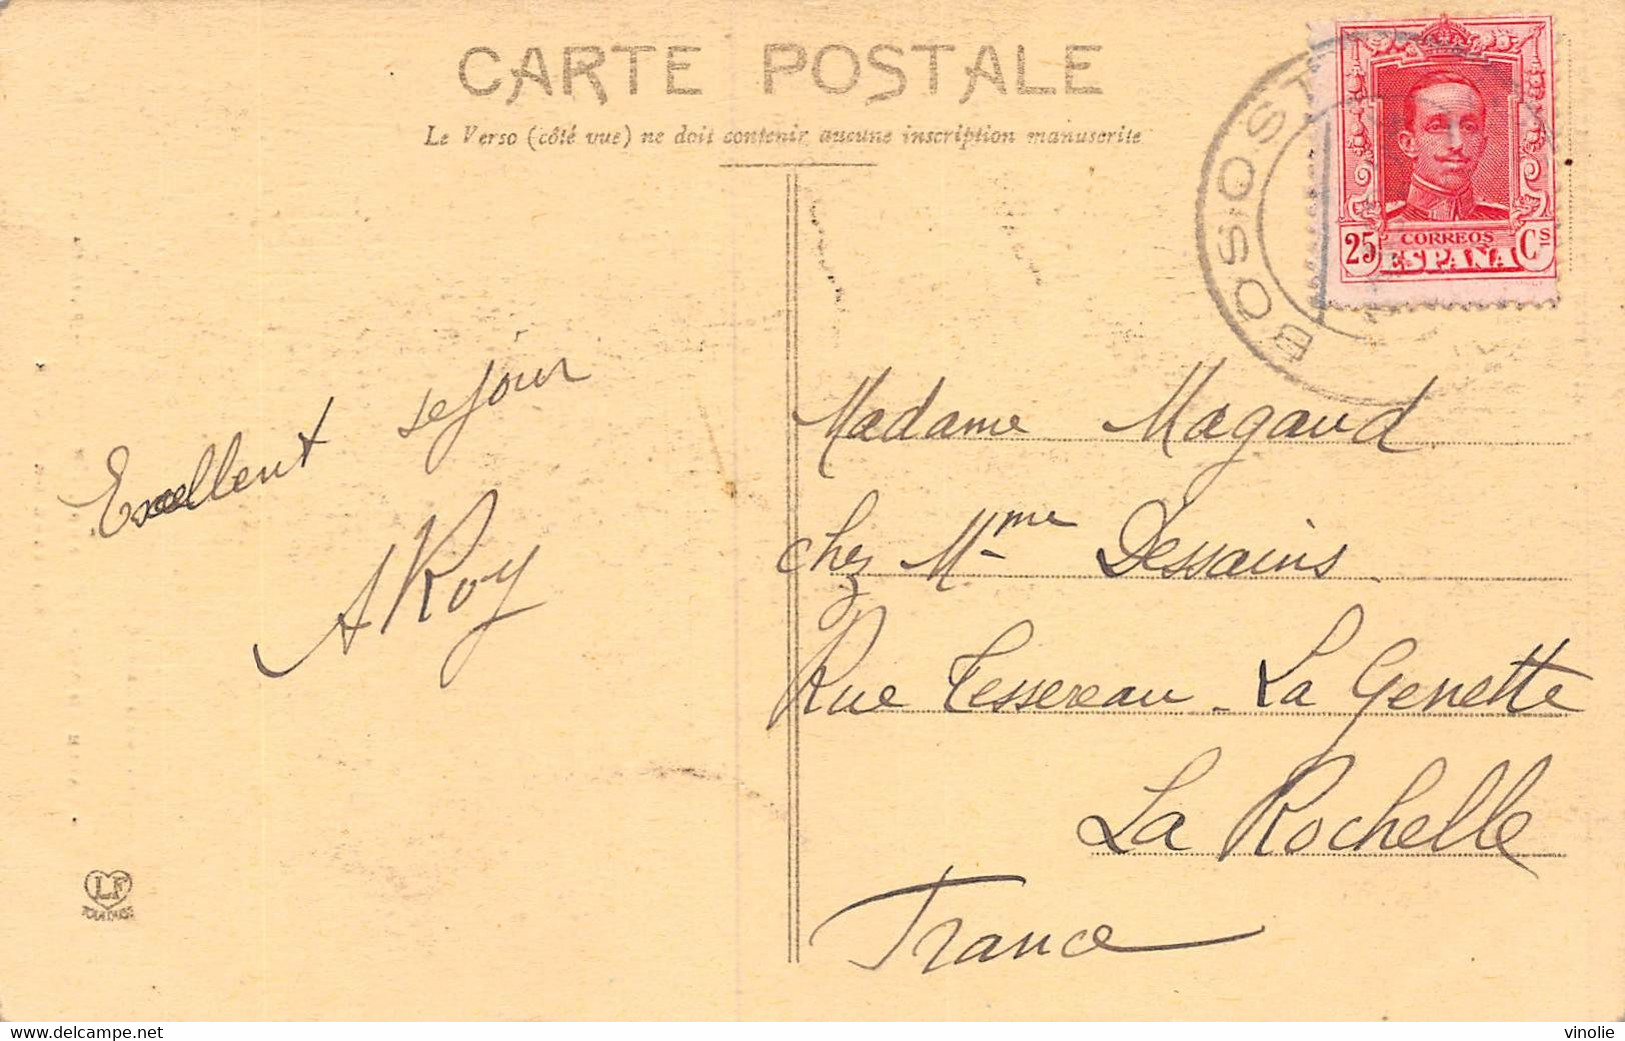 CARTE POSTALE
Le Verso (côté vue) ne doit contenir aucune inscription manuscrite
BOSOST
25 CORREOS Cs
ESPAÑA
Excellent séjour
A Roy
Madame Magaud
chez Mme Dessains
Rue Tessereau - La Genette
La Rochelle
France
LF
www.delcampe.net
vinolie